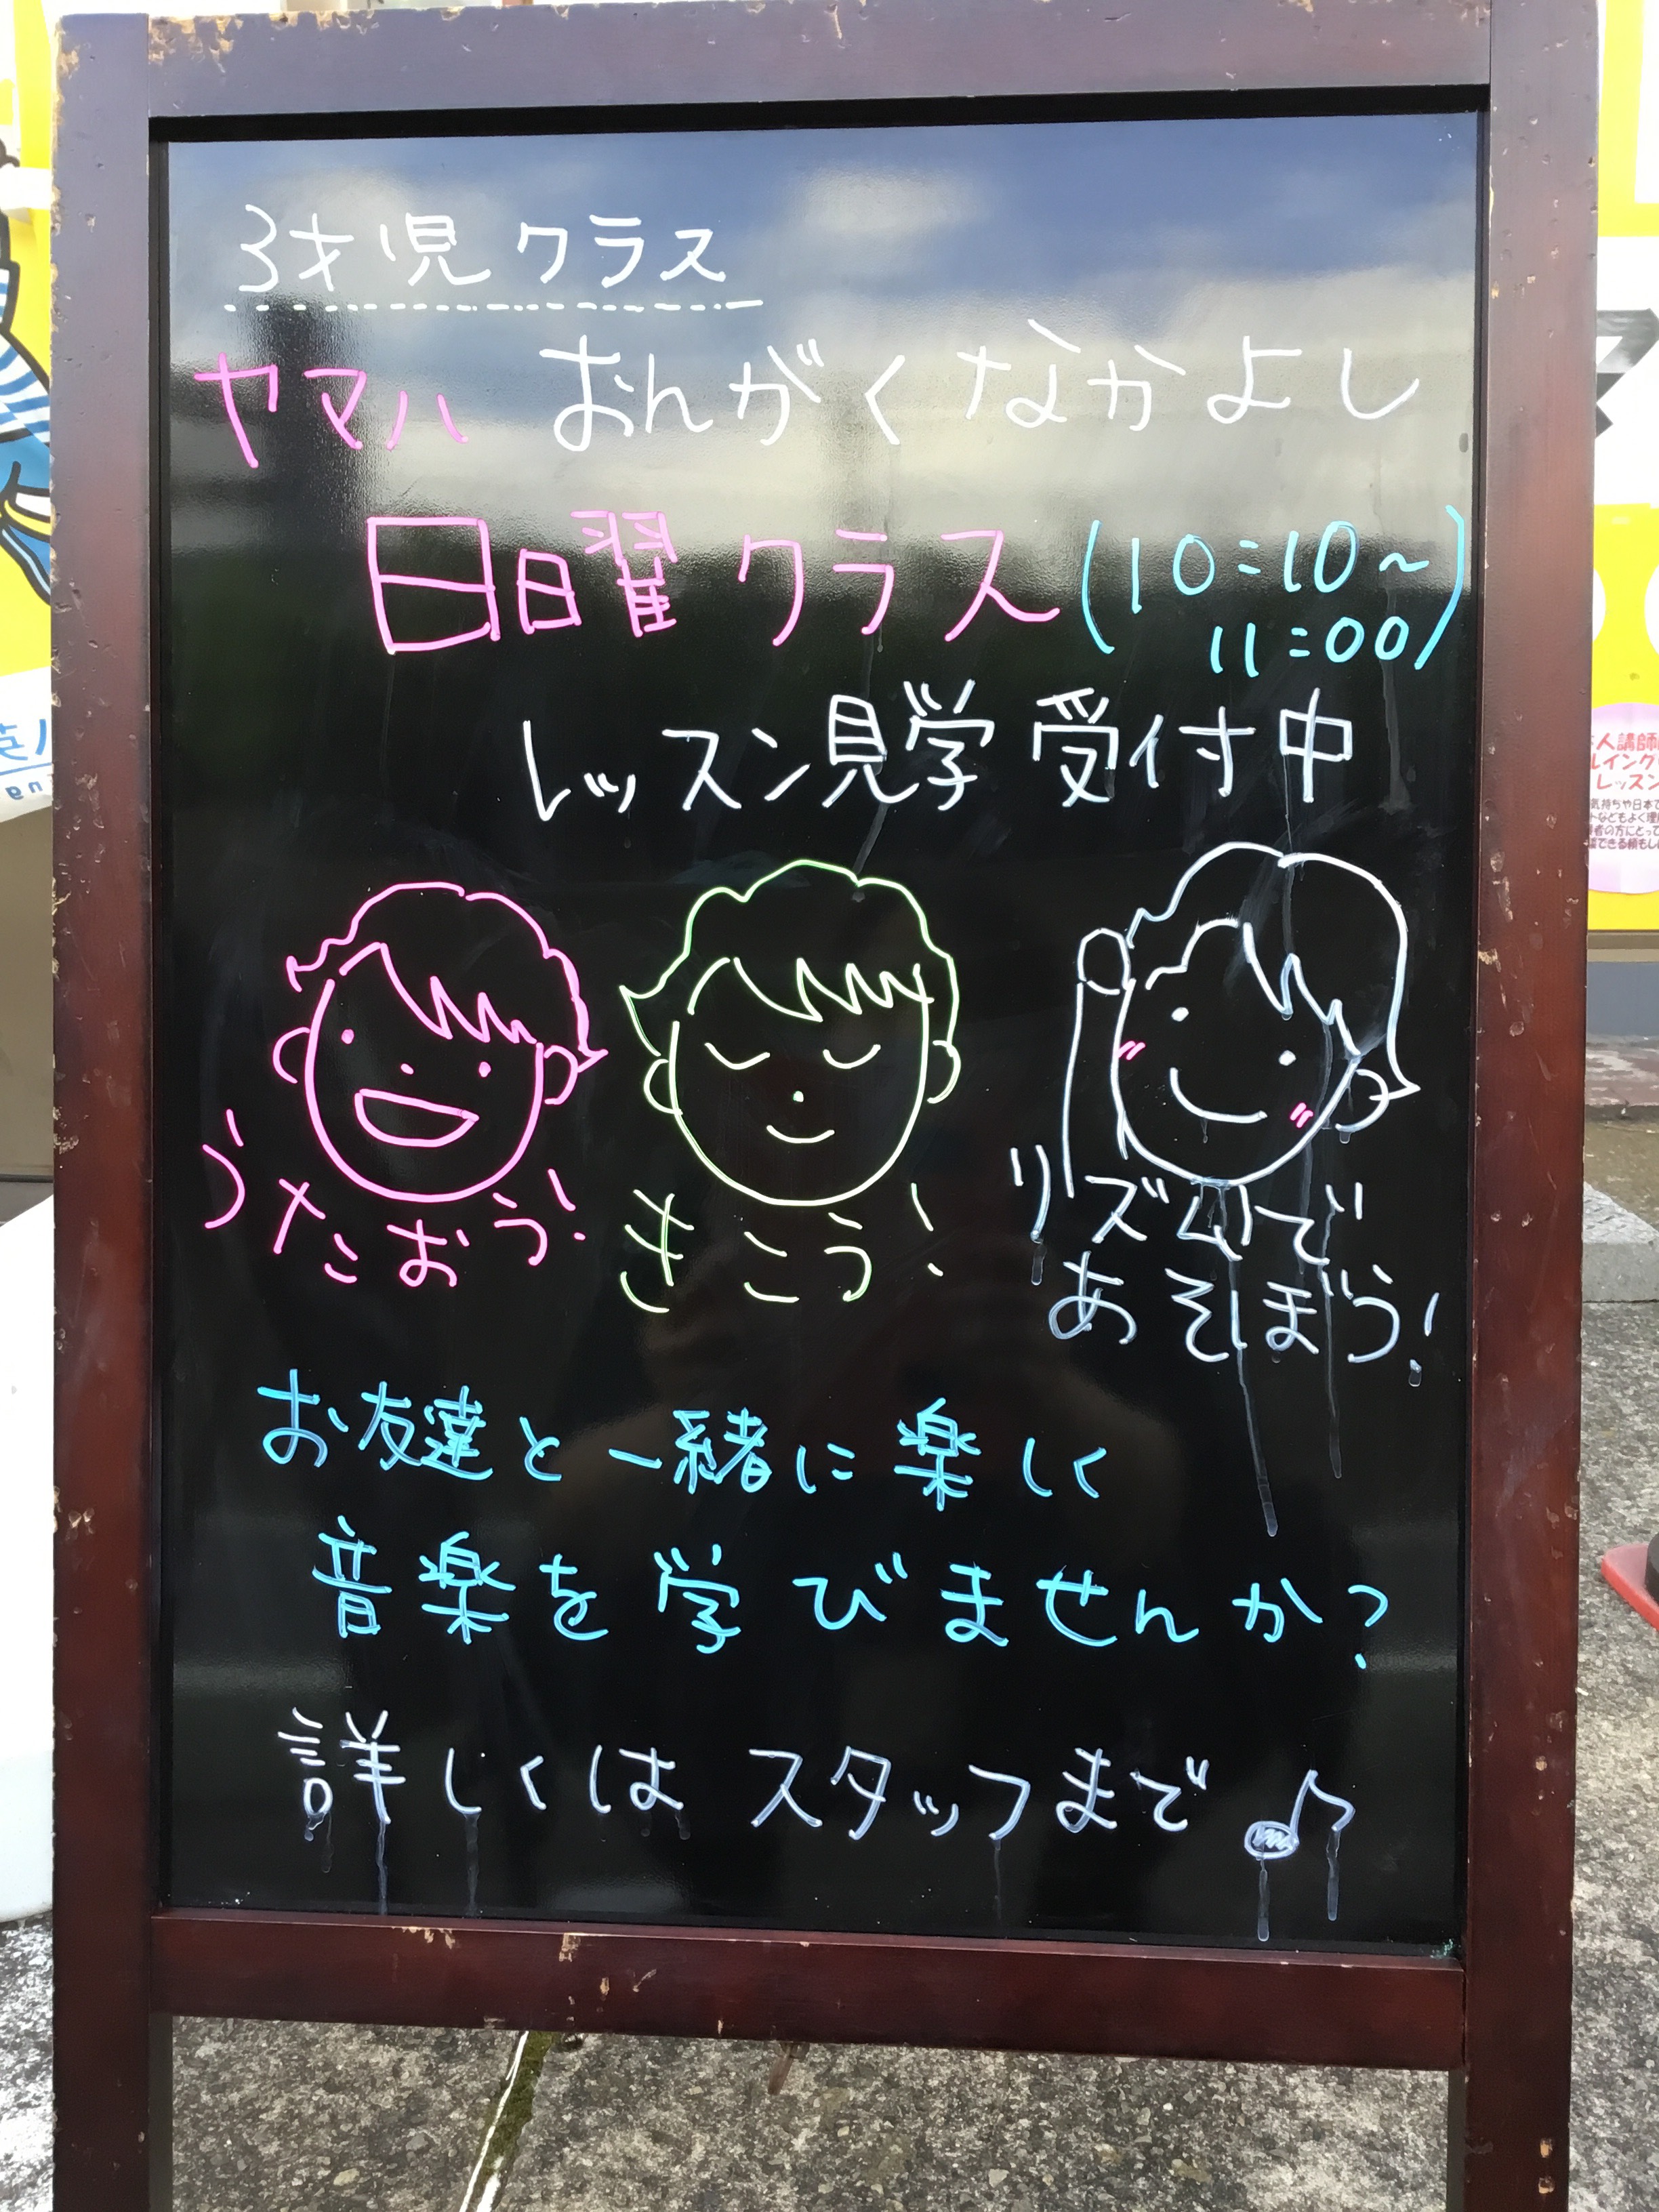 3才児クラス
ヤマハ おんがくなかよし
日曜クラス(10:10〜
11:00)
レッスン見学 受付中
うたおう!
きこう!
リズムで
あそぼう!
お友達と一緒に楽しく
音楽を学びませんか?
詳しくはスタッフまで♪
人講師
レイング
レッスン